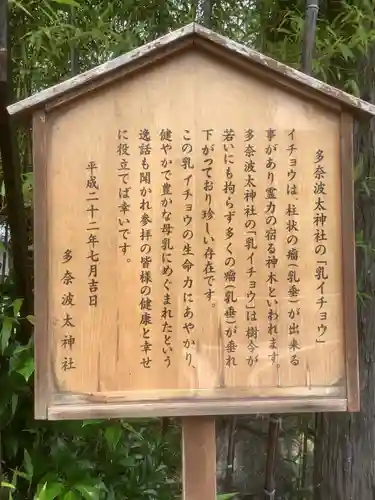 多奈波太神社の「乳イチョウ」
イチョウは、柱状の瘤(乳垂)が出来る
事があり霊力の宿る神木といわれます。
多奈波太神社の「乳イチョウ」は樹令が
若いにも拘らず多くの瘤(乳垂)が垂れ
下がっており珍しい存在です。
この乳イチョウの生命力にあやかり、
健やかで豊かな母乳にめぐまれたという
逸話も聞かれ参拝の皆様の健康と幸せ
に役立てば幸いです。
平成二十二年七月吉日
多奈波太神社